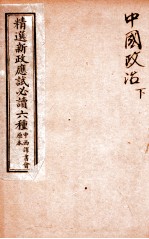 中國政治
下
精選新政應試必讀六種
中西譯書會
原本